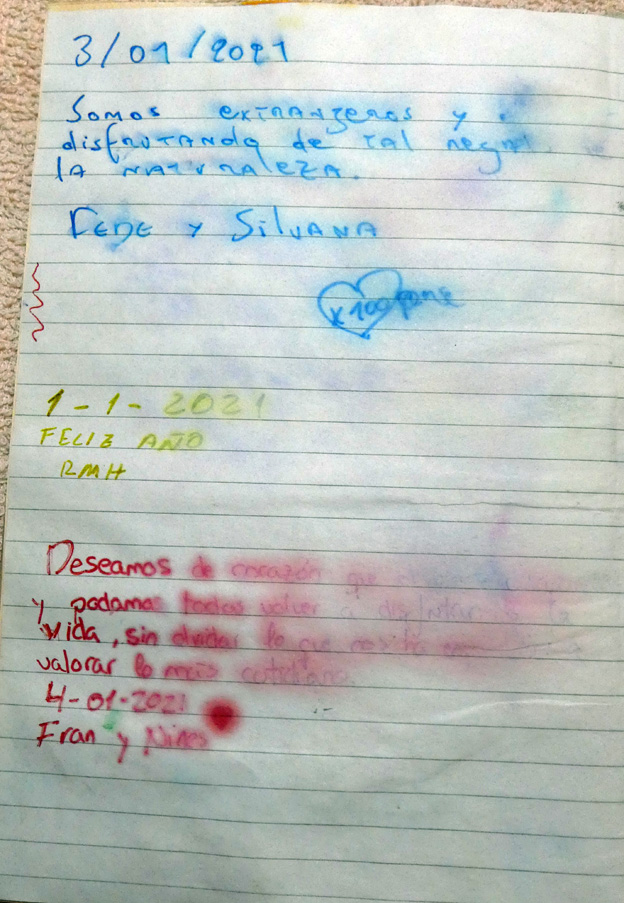 3/01/2021
Somos extranzeros y
disfrutando de tal negr
la naturaleza.
Fede y Silvana
x 100pre
1-1-2021
FELIZ AÑO
RMH
Deseamos de corazón que
y podamos todos volver a disfrutar la
vida, sin olvidar lo que
valorar lo más cotidiano.
4-01-2021
Fran y Nines